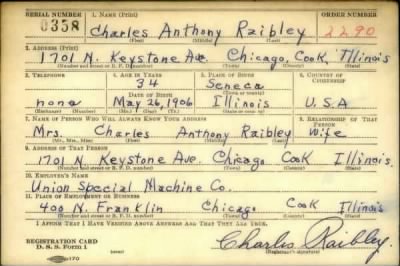 SERIAL NUMBER 1. NAME (Print) ORDER NUMBER
0358 Charles Anthony Raibley 2290
(First) (Middle) (Last)
2. ADDRESS (Print)
1701 N. Keystone Ave. Chicago, Cook, Illinois
(Number and street or R. F. D. number) (Town) (County) (State)
3. TELEPHONE 4. AGE IN YEARS 5. PLACE OF BIRTH 6. COUNTRY OF CITIZENSHIP
34 Seneca
none DATE OF BIRTH (Town or county)
May 26, 1906 Illinois U.S.A
(Exchange) (Number) (Mo.) (Day) (Yr.) (State or country)
7. NAME OF PERSON WHO WILL ALWAYS KNOW YOUR ADDRESS 8. RELATIONSHIP OF THAT PERSON
Mrs. Charles Anthony Raibley Wife
(Mr., Mrs., Miss) (First) (Middle) (Last)
9. ADDRESS OF THAT PERSON
1701 N. Keystone Ave. Chicago Cook Illinois
(Number and street or R. F. D. number) (Town) (County) (State)
10. EMPLOYER'S NAME
Union Special Machine Co.
11. PLACE OF EMPLOYMENT OR BUSINESS
400 N. Franklin Chicago Cook Illinois
(Number and street or R. F. D. number) (Town) (County) (State)
I AFFIRM THAT I HAVE VERIFIED ABOVE ANSWERS AND THAT THEY ARE TRUE.
REGISTRATION CARD
D. S. S. Form 1 Charles Raibley.
(Registrant's signature)